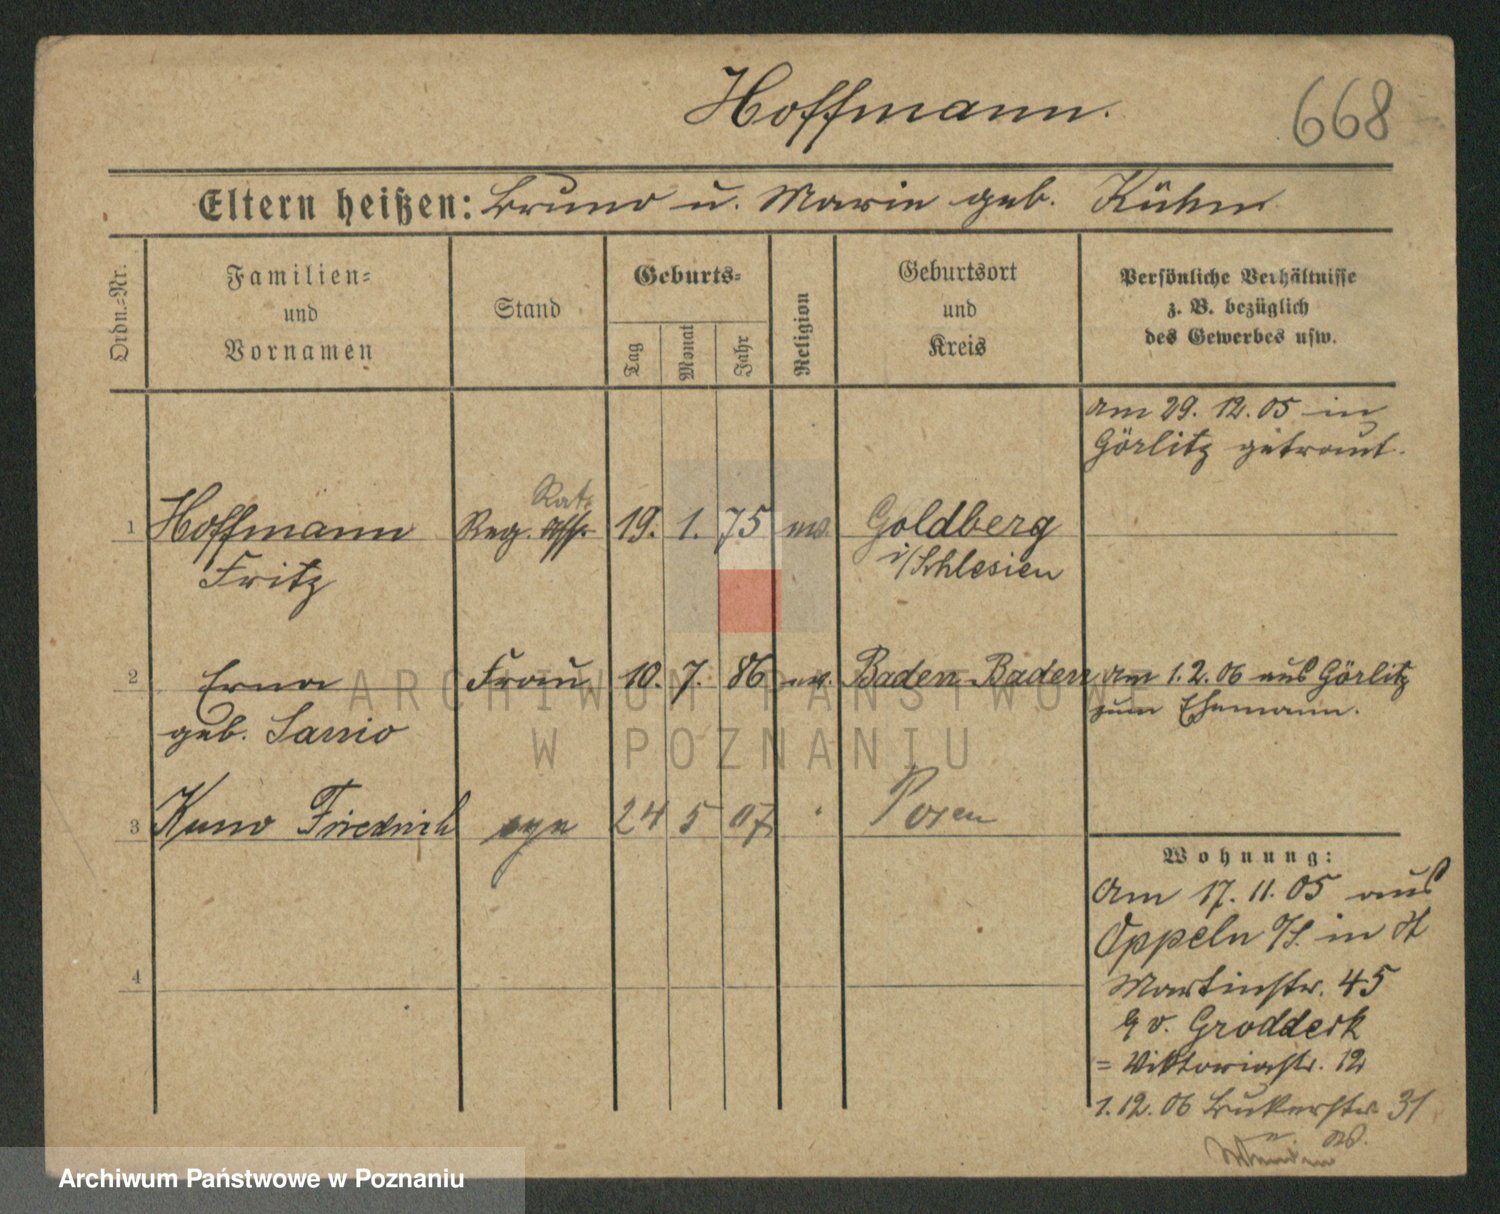 Hoffmann.
668
Eltern heißen: Bruno u. Marie geb. Kühn
Ordn.-Nr.
Familien-
und
Vornamen
Stand
Geburts-
Tag
Monat
Jahr
Religion
Geburtsort
und
Kreis
Persönliche Verhältnisse
z. B. bezüglich
des Gewerbes usw.
am 29. 12. 05 in
Görlitz getraut.
Rat.
1 Hoffmann Reg. Ass. 19. 1. 75 ev. Goldberg
Fritz i/Schlesien
2 Erna Frau 10. 7. 86 ev. Baden-Baden am 1. 2. 06 aus Görlitz
geb. Sarrio zum Ehemann.
3 Kuno Friedrich 24 5 07 Posen
Wohnung:
am 17. 11. 05 aus
Oppeln O/S. in H
4
Martinstr. 45
b v. Groddeck
= Viktoriastr. 12
1. 12. 06 Bukerstr. 31
ARCHIWUM PAŃSTWOWE
W POZNANIU
Archiwum Państwowe w Poznaniu